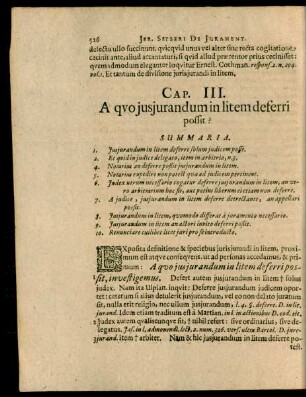 526 JER. SETSERI DE JURAMENT.
delectu ullo succinunt. quicquid unus vel alter sine recta cogitatione
cecinit ante, aliud accantaturi, si quid aliud præcentor prius cecinisset:
quemadmodum eleganter loqvitur Ernest. Cothman.
Et tantum de divisione jurisjurandi in litem.
CAP. III.
A qvo jusjurandum in litem deferri
possit?
SUMMARIA.
1. Jusjurandum in litem deferre solum judicem posse.
2. Et quid in judice delegato, item in arbitrio, n.3.
4. Notarius an deferre possit jusjurandum in litem.
5. Notarius expedire non potest quæ ad judicem pertinent.
6. Judex utrum necessario cogatur deferre jusjurandum in litem, an vero
arbitrarium hoc sit, aut potius liberum ei etiam non deferre.
7. A judice, jusjurandum in litem deferre detrectante, an appellari
possit.
8. Jusjurandum in litem, quomodo differat à juramento necessario.
9. Jusjurandum in litem an actori invito deferre possit.
10. Renunciare cuilibet licet juri pro se introducto.
EXposita definitione & speciebus jurisjurandi in litem, proximum
est atque consequens, ut ad personas accedamus, & primum:
A quo jusjurandum in litem deferri possit,
investigemus, Defert autem jusjurandum in litem † solus
judex. Nam ita Ulpian. inquit: Deferre jusjurandum judicem oportet:
cetarum si alius deferat jusjurandum, vel eo non delato juratum
sit, nulla erit religio, nec ullum jusjurandum. l.4. §. deferre. D. in lit.
jurand. Idem etiam tradit in l. in actionibus D. eod. tit.
Judex autem qualis
legatus. Jas. in l. admonendi. vers. ultra Bartol. D. jurejurand.
item † arbiter. Nam & hic jusjurandum in litem deferre
potest.